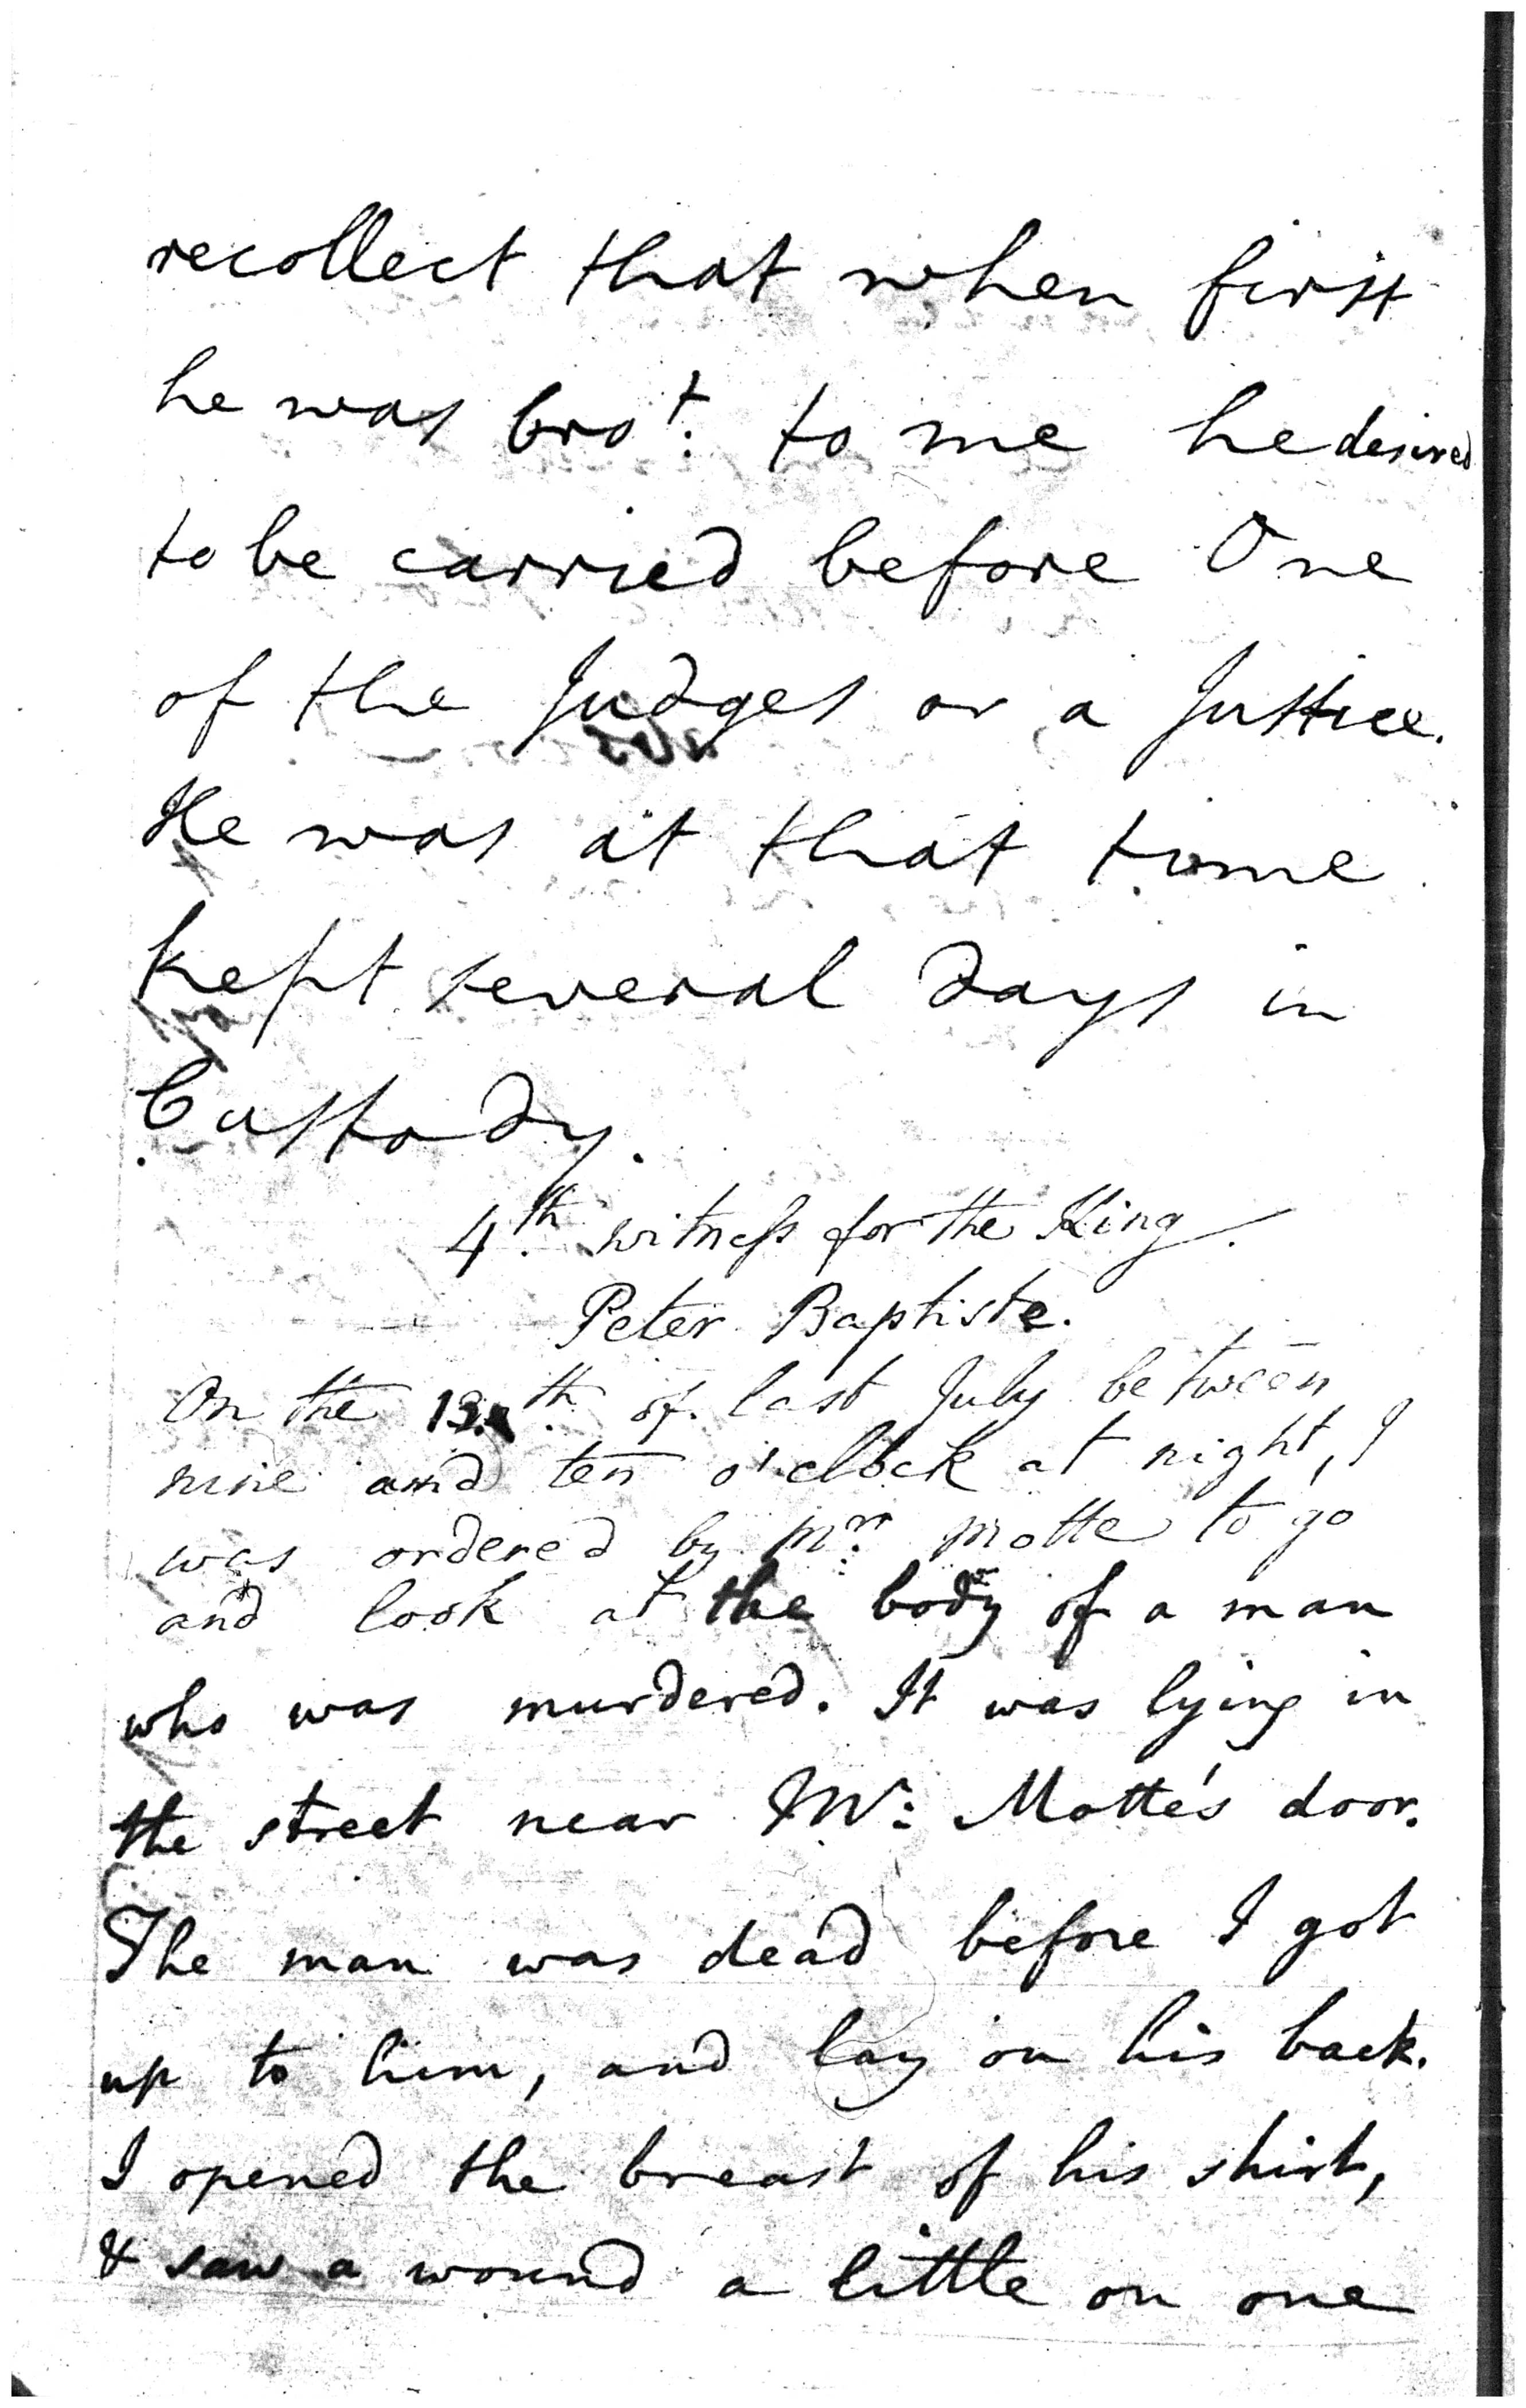 recollect that when first
he was bro.t to me he desired
to be carried before One
of the Judges or a Justice.
He was at that time
kept several days in
Custody.
4th witness for the King.
Peter Baptiste.
On the th of last July between
nine and ten o'clock at night, I
was ordered by Mr. Motte to go
and look at the body of a man
who was murdered. It was lying in
the street near Mr: Motte's door.
The man was dead before I got
up to him, and lay on his back.
I opened the breast of his shirt,
& saw a wound a little on one